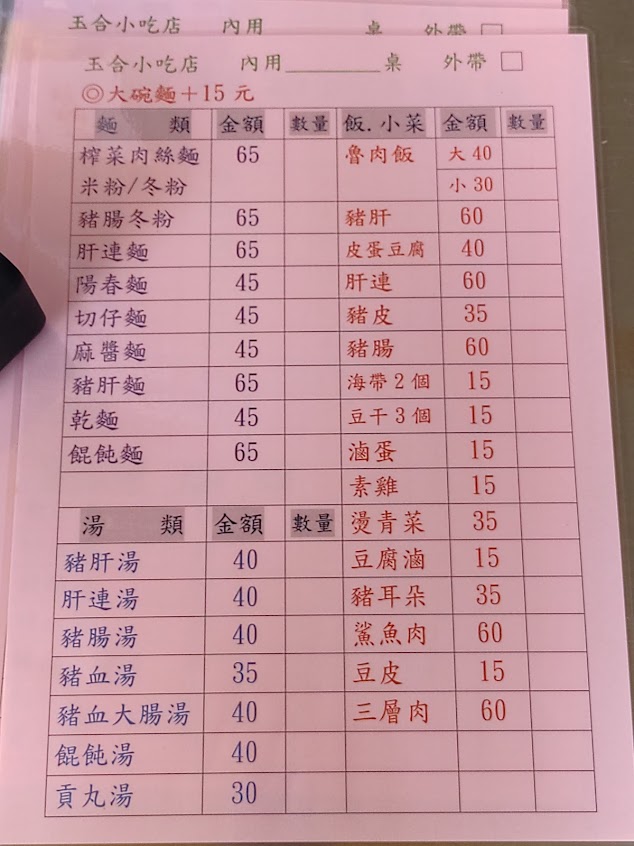 玉合小吃店 內用 桌 外帶
玉合小吃店 內用________桌 外帶 □
◎大碗麵＋15 元
麵 類 金額 數量 飯.小菜 金額 數量
榨菜肉絲麵 65 魯肉飯 大 40
米粉/冬粉 小 30
豬腸冬粉 65 豬肝 60
肝連麵 65 皮蛋豆腐 40
陽春麵 45 肝連 60
切仔麵 45 豬皮 35
麻醬麵 45 豬腸 60
豬肝麵 65 海帶 2 個 15
乾麵 45 豆干 3 個 15
餛飩麵 65 滷蛋 15
素雞 15
湯 類 金額 數量 燙青菜 35
豬肝湯 40 豆腐滷 15
肝連湯 40 豬耳朵 35
豬腸湯 40 鯊魚肉 60
豬血湯 35 豆皮 15
豬血大腸湯 40 三層肉 60
餛飩湯 40
貢丸湯 30